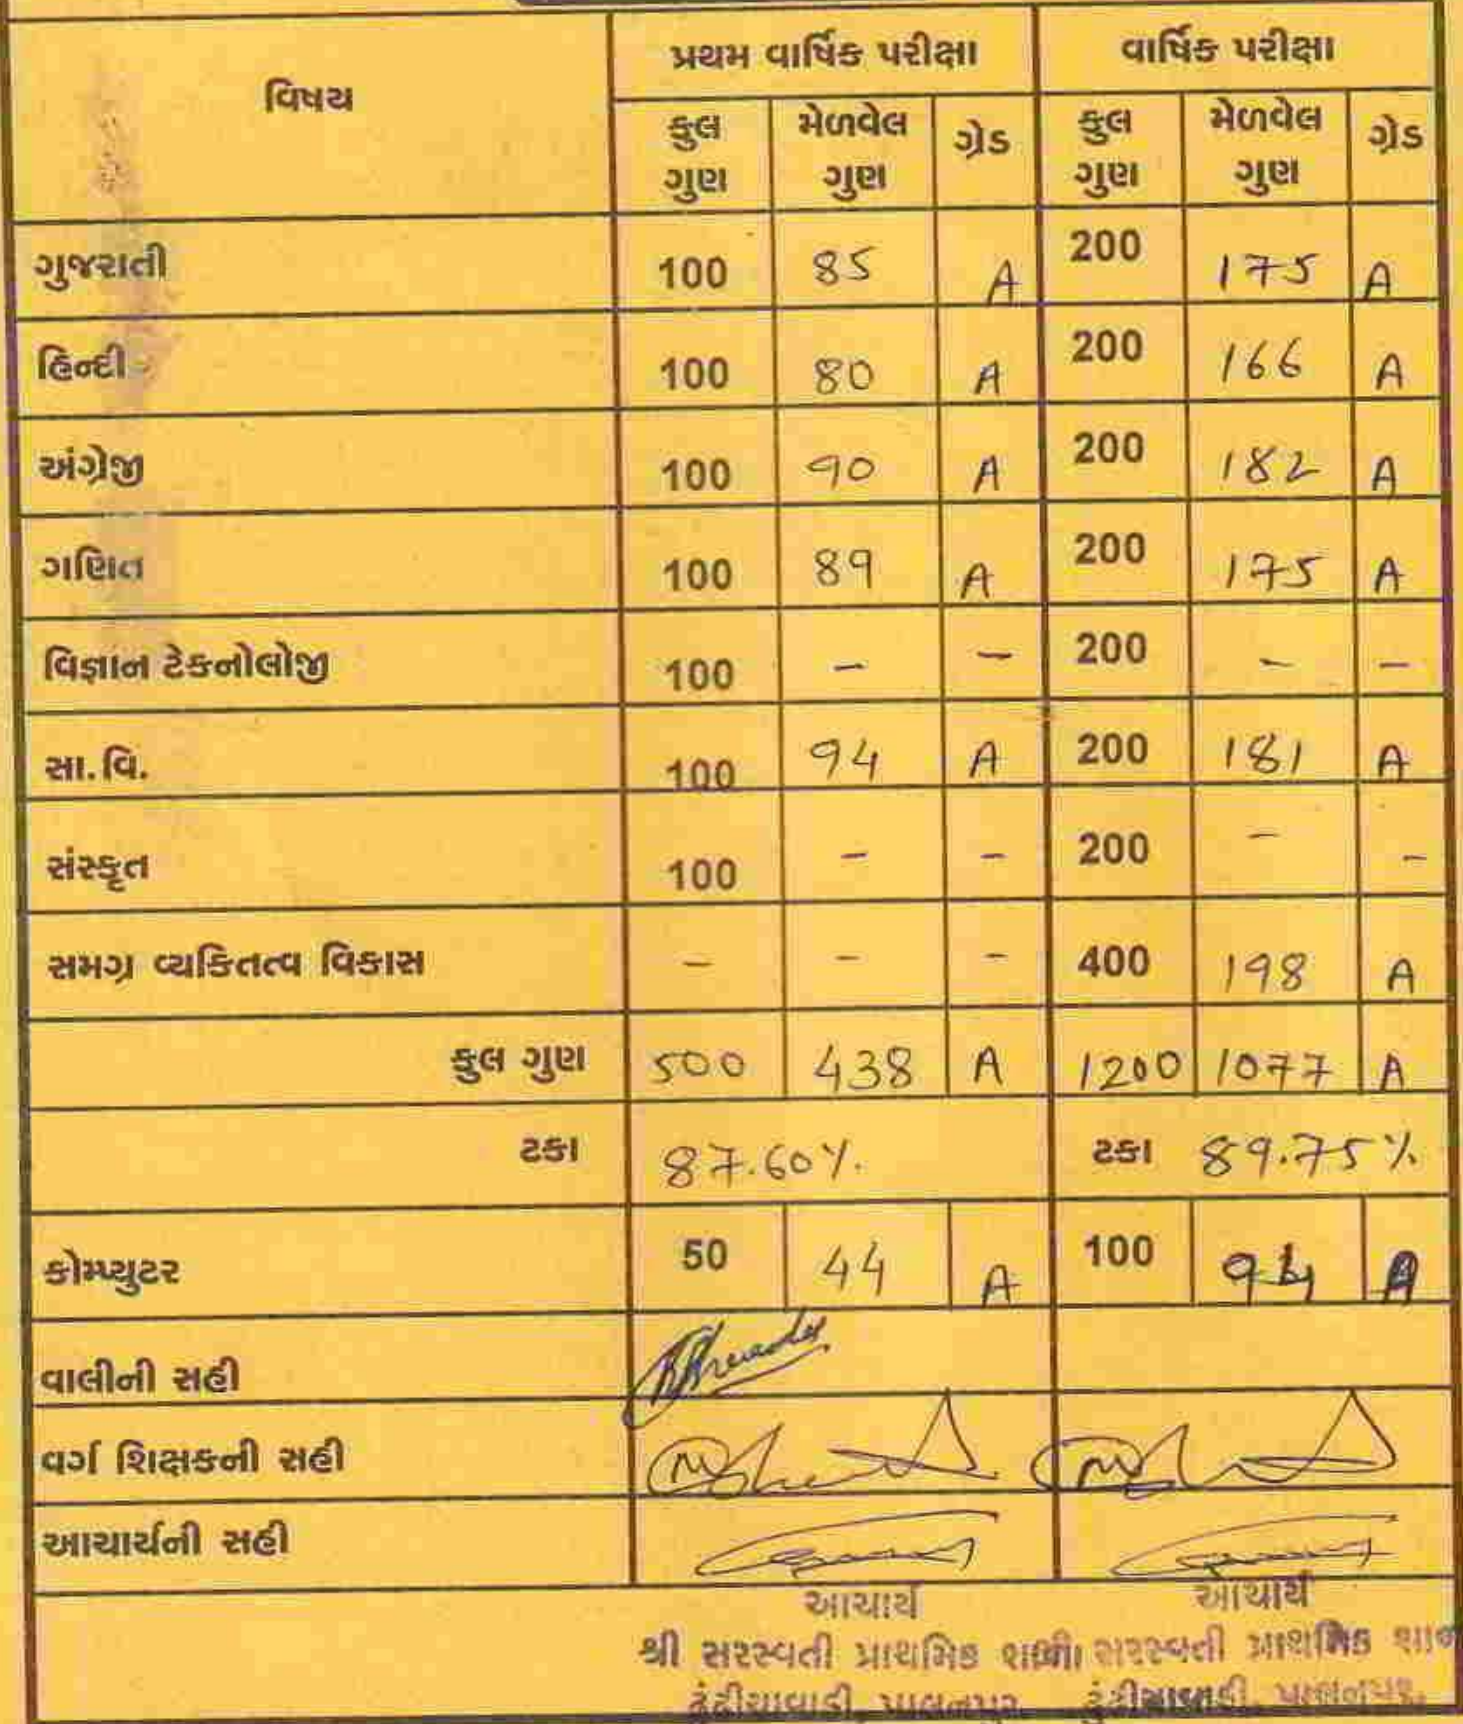 વિષય પ્રથમ વાર્ષિક પરીક્ષા વાર્ષિક પરીક્ષા
કુલ ગુણ મેળવેલ ગુણ ગ્રેડ કુલ ગુણ મેળવેલ ગુણ ગ્રેડ
ગુજરાતી 100 85 A 200 175 A
હિન્દી 100 80 A 200 166 A
અંગ્રેજી 100 90 A 200 182 A
ગણિત 100 89 A 200 175 A
વિજ્ઞાન ટેકનોલોજી 100 - - 200 - -
સા.વિ. 100 94 A 200 181 A
સંસ્કૃત 100 - - 200 - -
સમગ્ર વ્યકિતત્વ વિકાસ - - - 400 198 A
કુલ ગુણ 500 438 A 1200 1077 A
ટકા 87.60%. ટકા 89.75%.
કોમ્પ્યુટર 50 44 A 100 94 A
વાલીની સહી
વર્ગ શિક્ષકની સહી
આચાર્યની સહી
આચાર્ય આચાર્ય
શ્રી સરસ્વતી પ્રાથમિક સરસ્વતી પ્રાથમિક
ઢુંઢીયાવાડી, પાલનપુર. પાલનપુર.